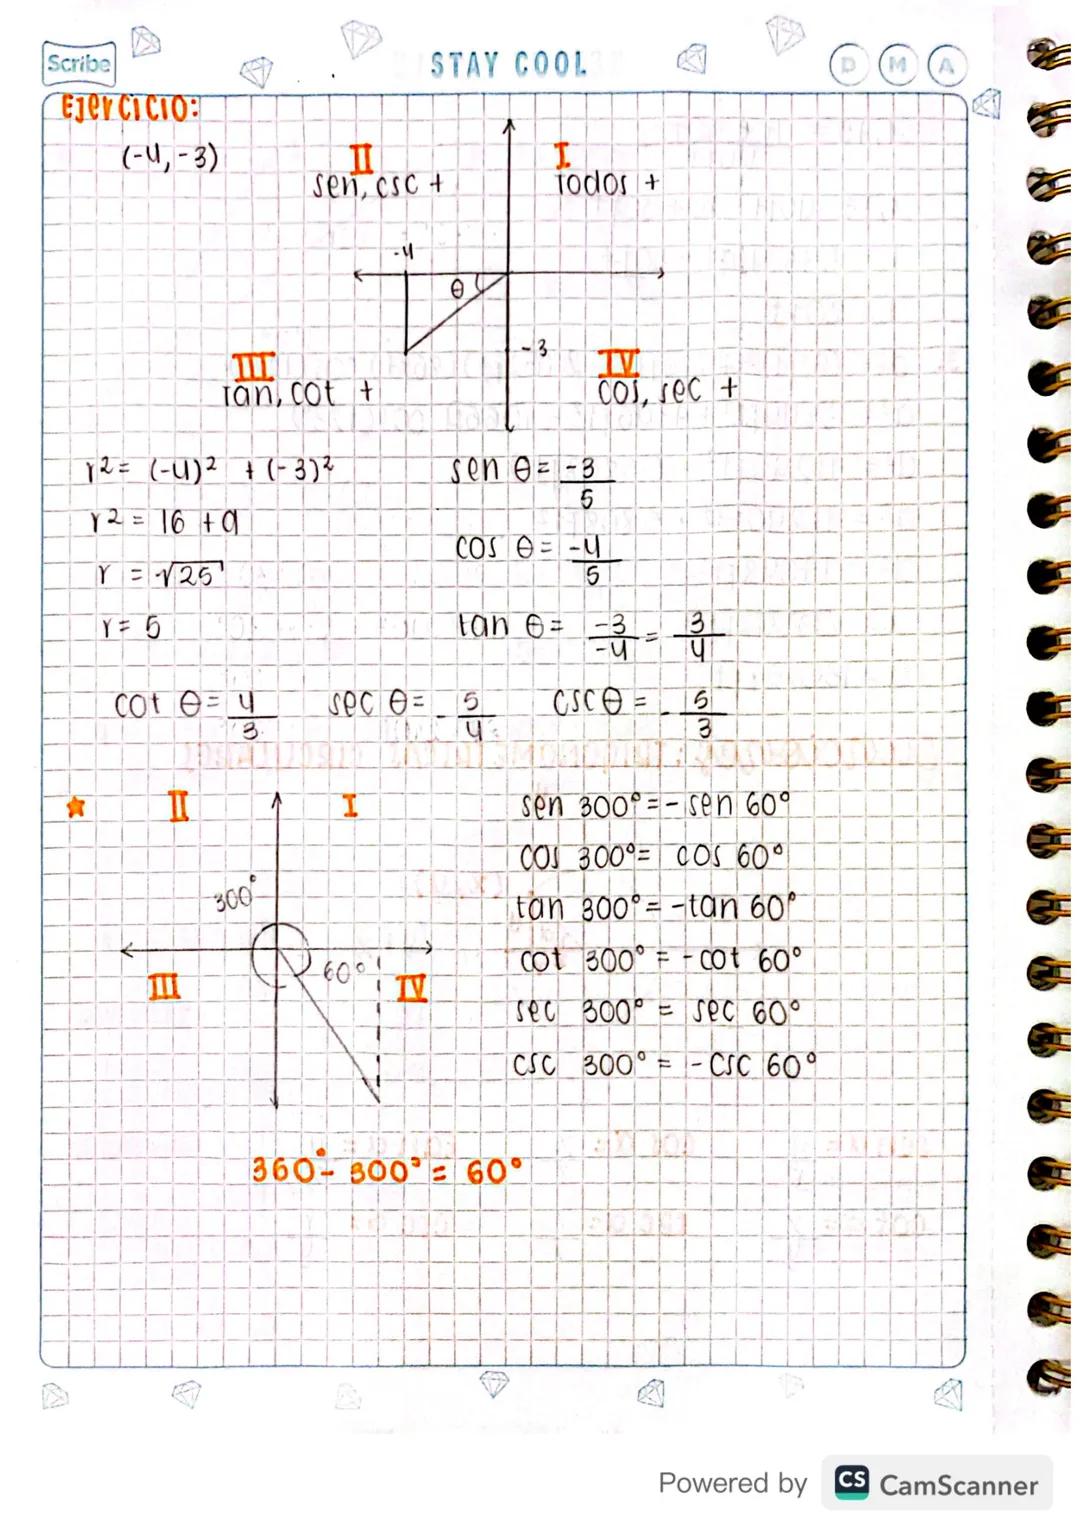 Scribe
STAY COOL
D M A
Ejercicio:
(-4, -3)
II
sen, csc +
I
Todos +
-4
θ
-3
III
Tan, cot +
IV
cos, sec +
r² = (-4)² + (-3)²
r² = 16 + 9
r = √25
r = 5
sen θ = -3/5
cos θ = -4/5
tan θ = -3/-4 = 3/4
cot θ = 4/3 sec θ = -5/4 csc θ = -5/3
II I
300°
60°
III IV
sen 300° = - sen 60°
cos 300° = cos 60°
tan 300° = -tan 60°
cot 300° = - cot 60°
sec 300° = sec 60°
csc 300° = - csc 60°
360° - 300° = 60°
Powered by CS CamScanner